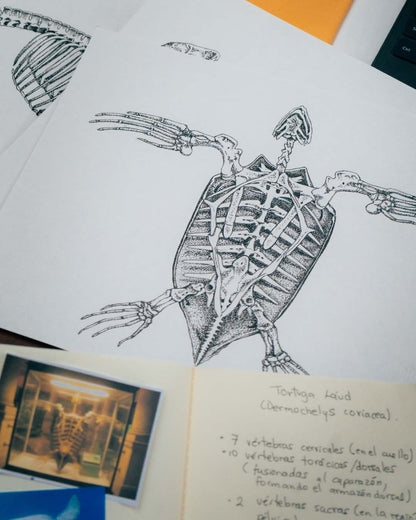 Ctrl
Tortuga Laúd
(Dermochelys coriacea).
• 7 vértebras cervicales (en el cuello)
• 10 vértebras torácicas/dorsales
(fusionadas al caparazón,
formando el armazón dorsal)
• 2 vértebras sacras (en la región